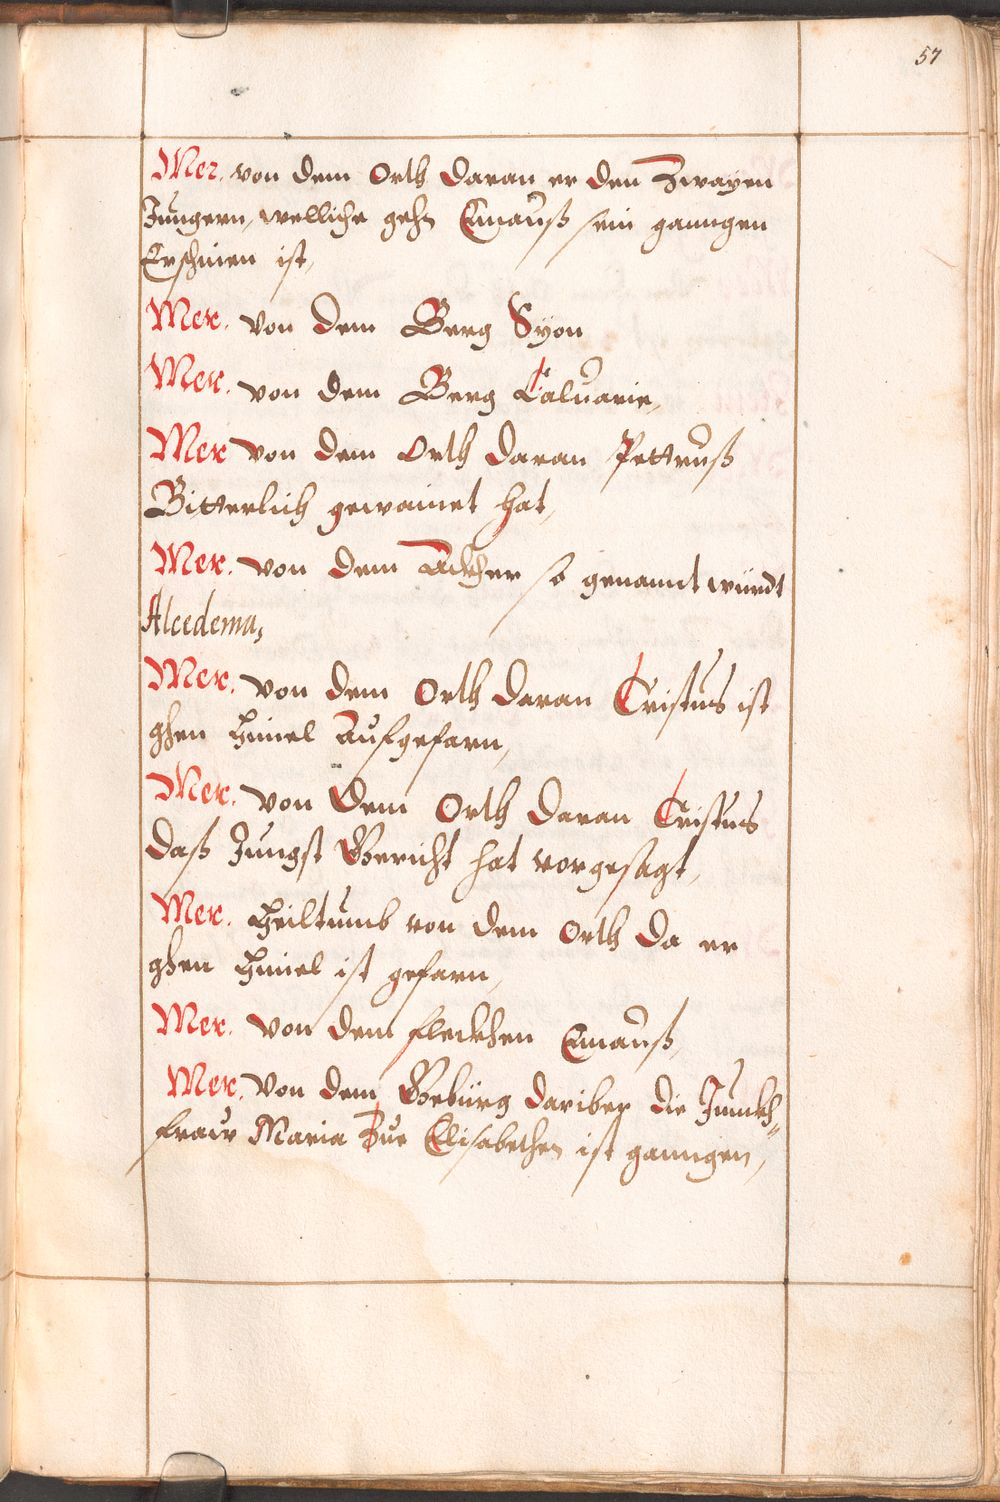 57
Mer. von dem Orth daran er den Zwayen
Jungern, welliche gehn Emauß sein ganngen
Erschinen ist,
Mer. von dem Berg Syon
Mer. von dem Berg Caluarie,
Mer von dem Orth daran Pettruß
Bitterlich gewainet hat,
Mer. von dem Ackher so genannt würdt
Alcedema,
Mer. von dem Orth daran Cristus ist
ghen Himel Aufgefarn,
Mer. von dem Orth daran Cristus
daß Jungst Gericht hat vorgesagt,
Mer. Heiltumb von dem Orth da er
ghen Himel ist gefarn,
Mer. von dem fleckhen Emauß,
Mer. von dem Gebürg dariber die Junckh„
fraw Maria Zue Elisabethen ist ganngen,